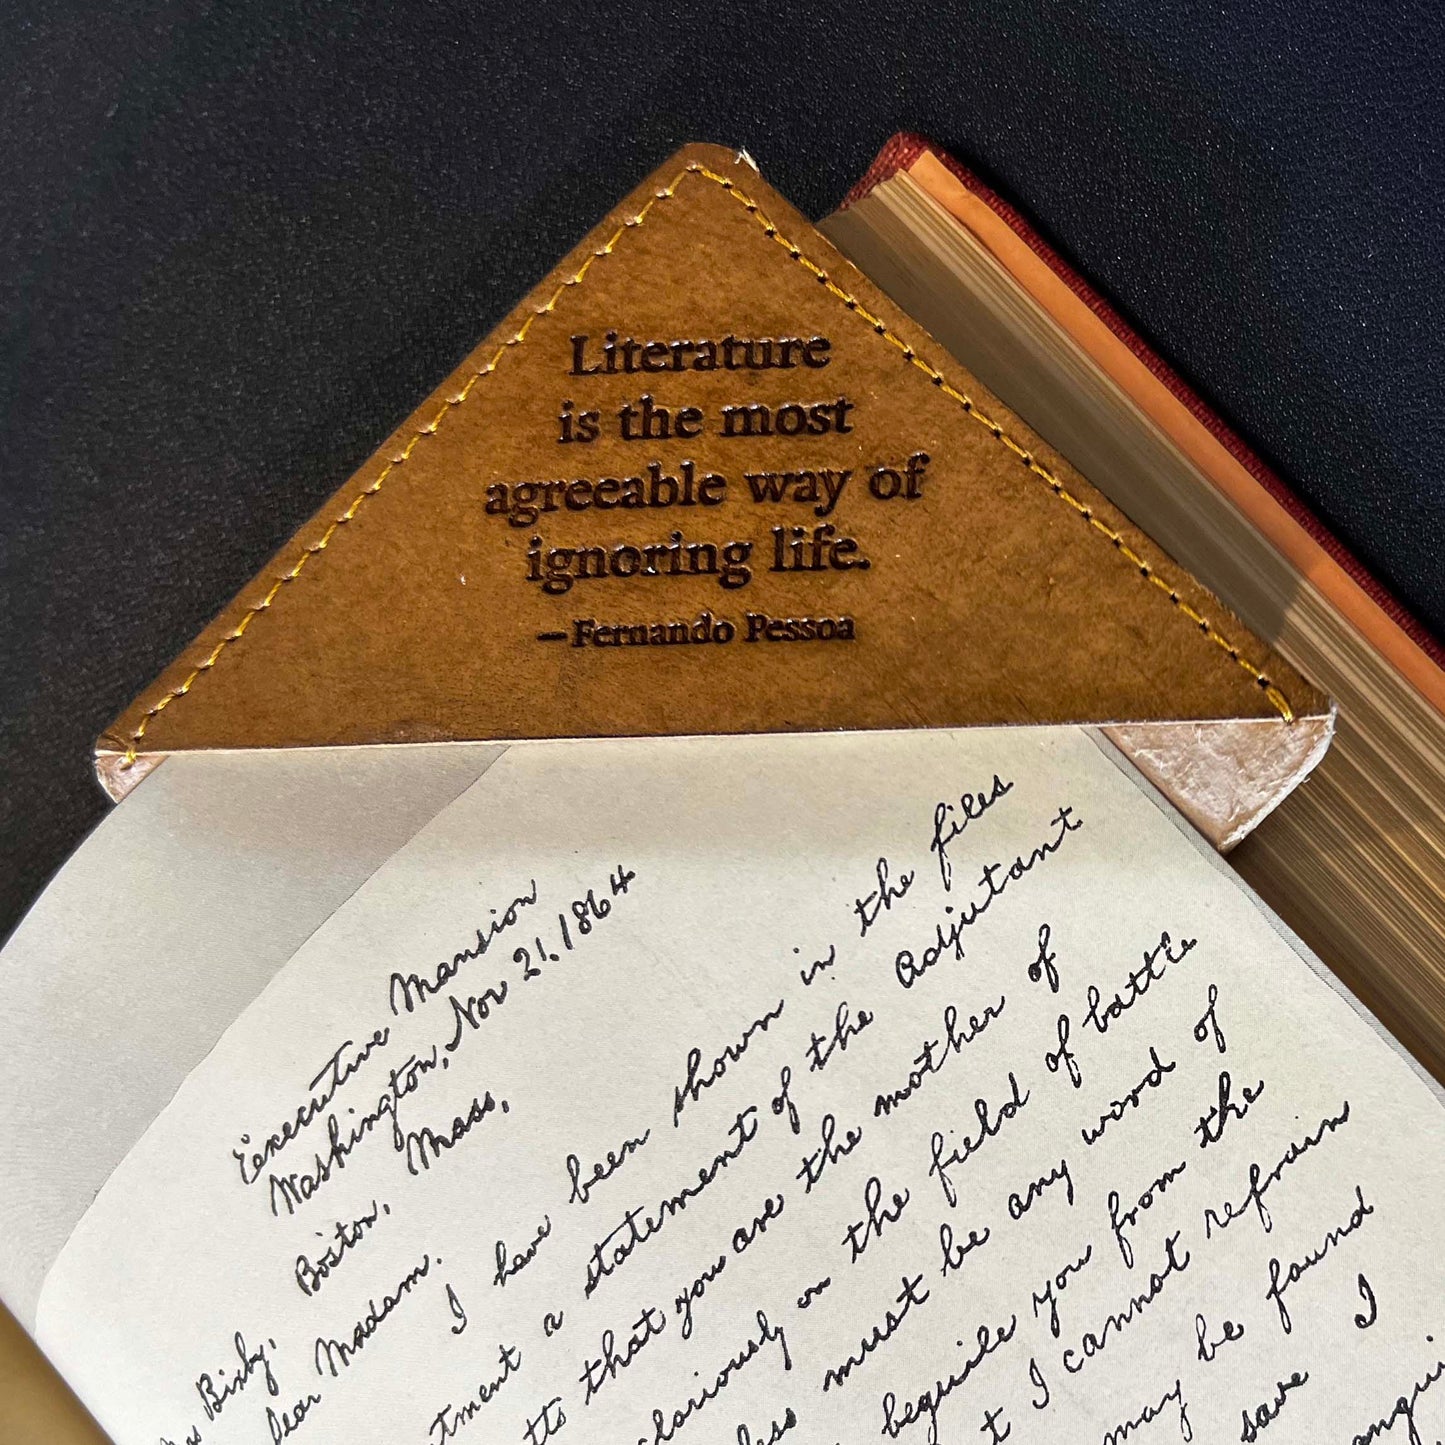 Literature
is the most
agreeable way of
ignoring life.
—Fernando Pessoa
Executive Mansion
Washington, Nov 21, 1864
Bixby,
Boston, Mass,
Madam.
I have been shown in the files
a statement of the Adjutant
that you are the mother of
on the field of battle
must be any word of
beguile you from the
I cannot refrain
may be found
save I